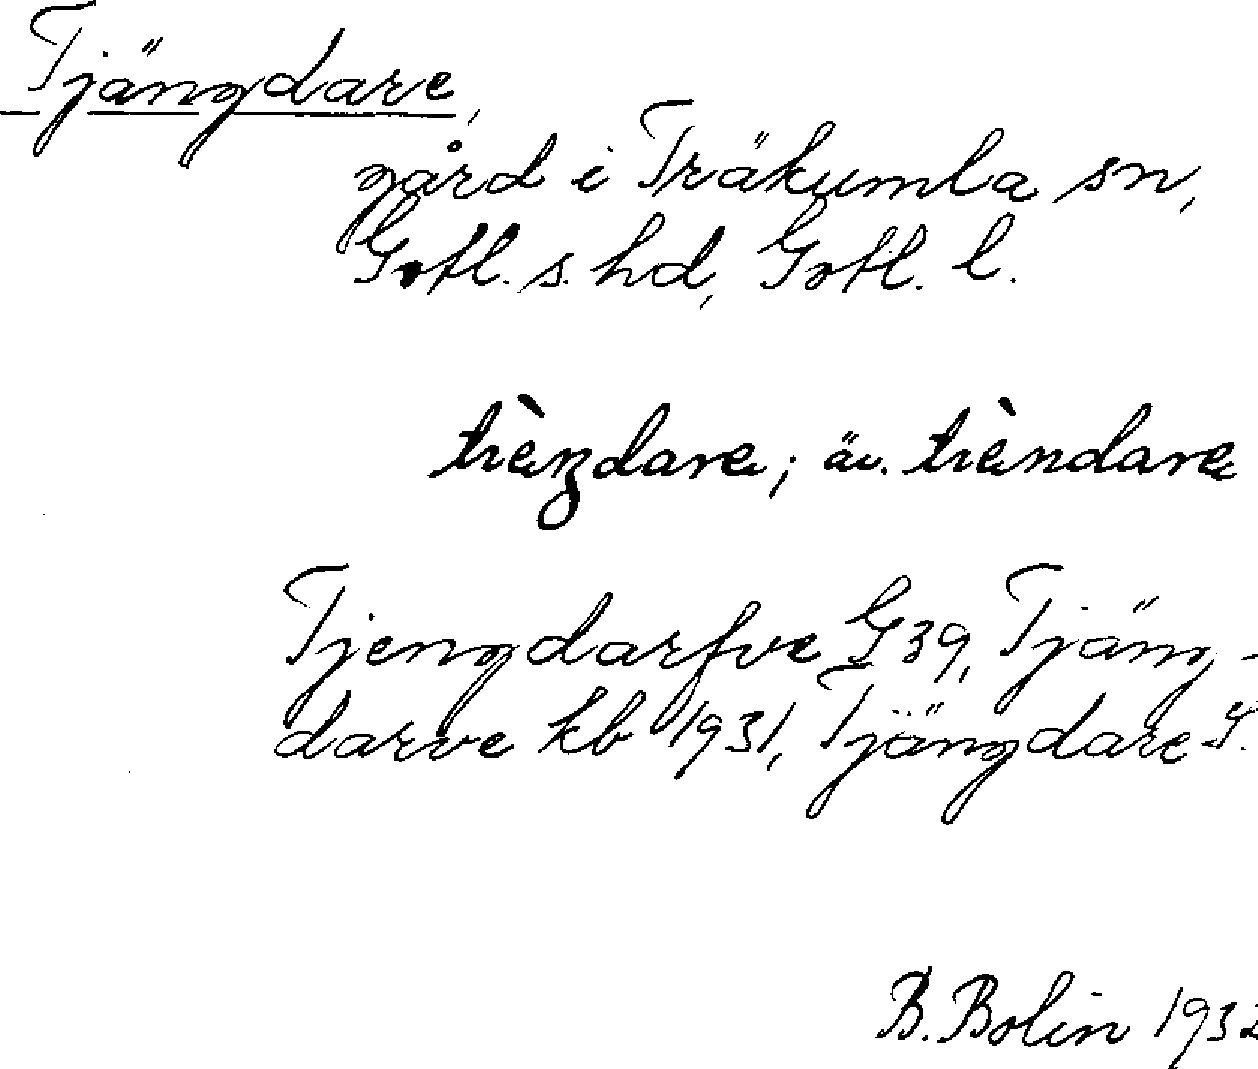 Tjängdare,
gård i Träkumla sn,
Gotl. s. hd, Gotl. l.
tièŋdare; äv. tièndare
Tjengdarfve G 39, Tjäng-
darve kb 1931, Tjängdare J.
B. Bolin 1932